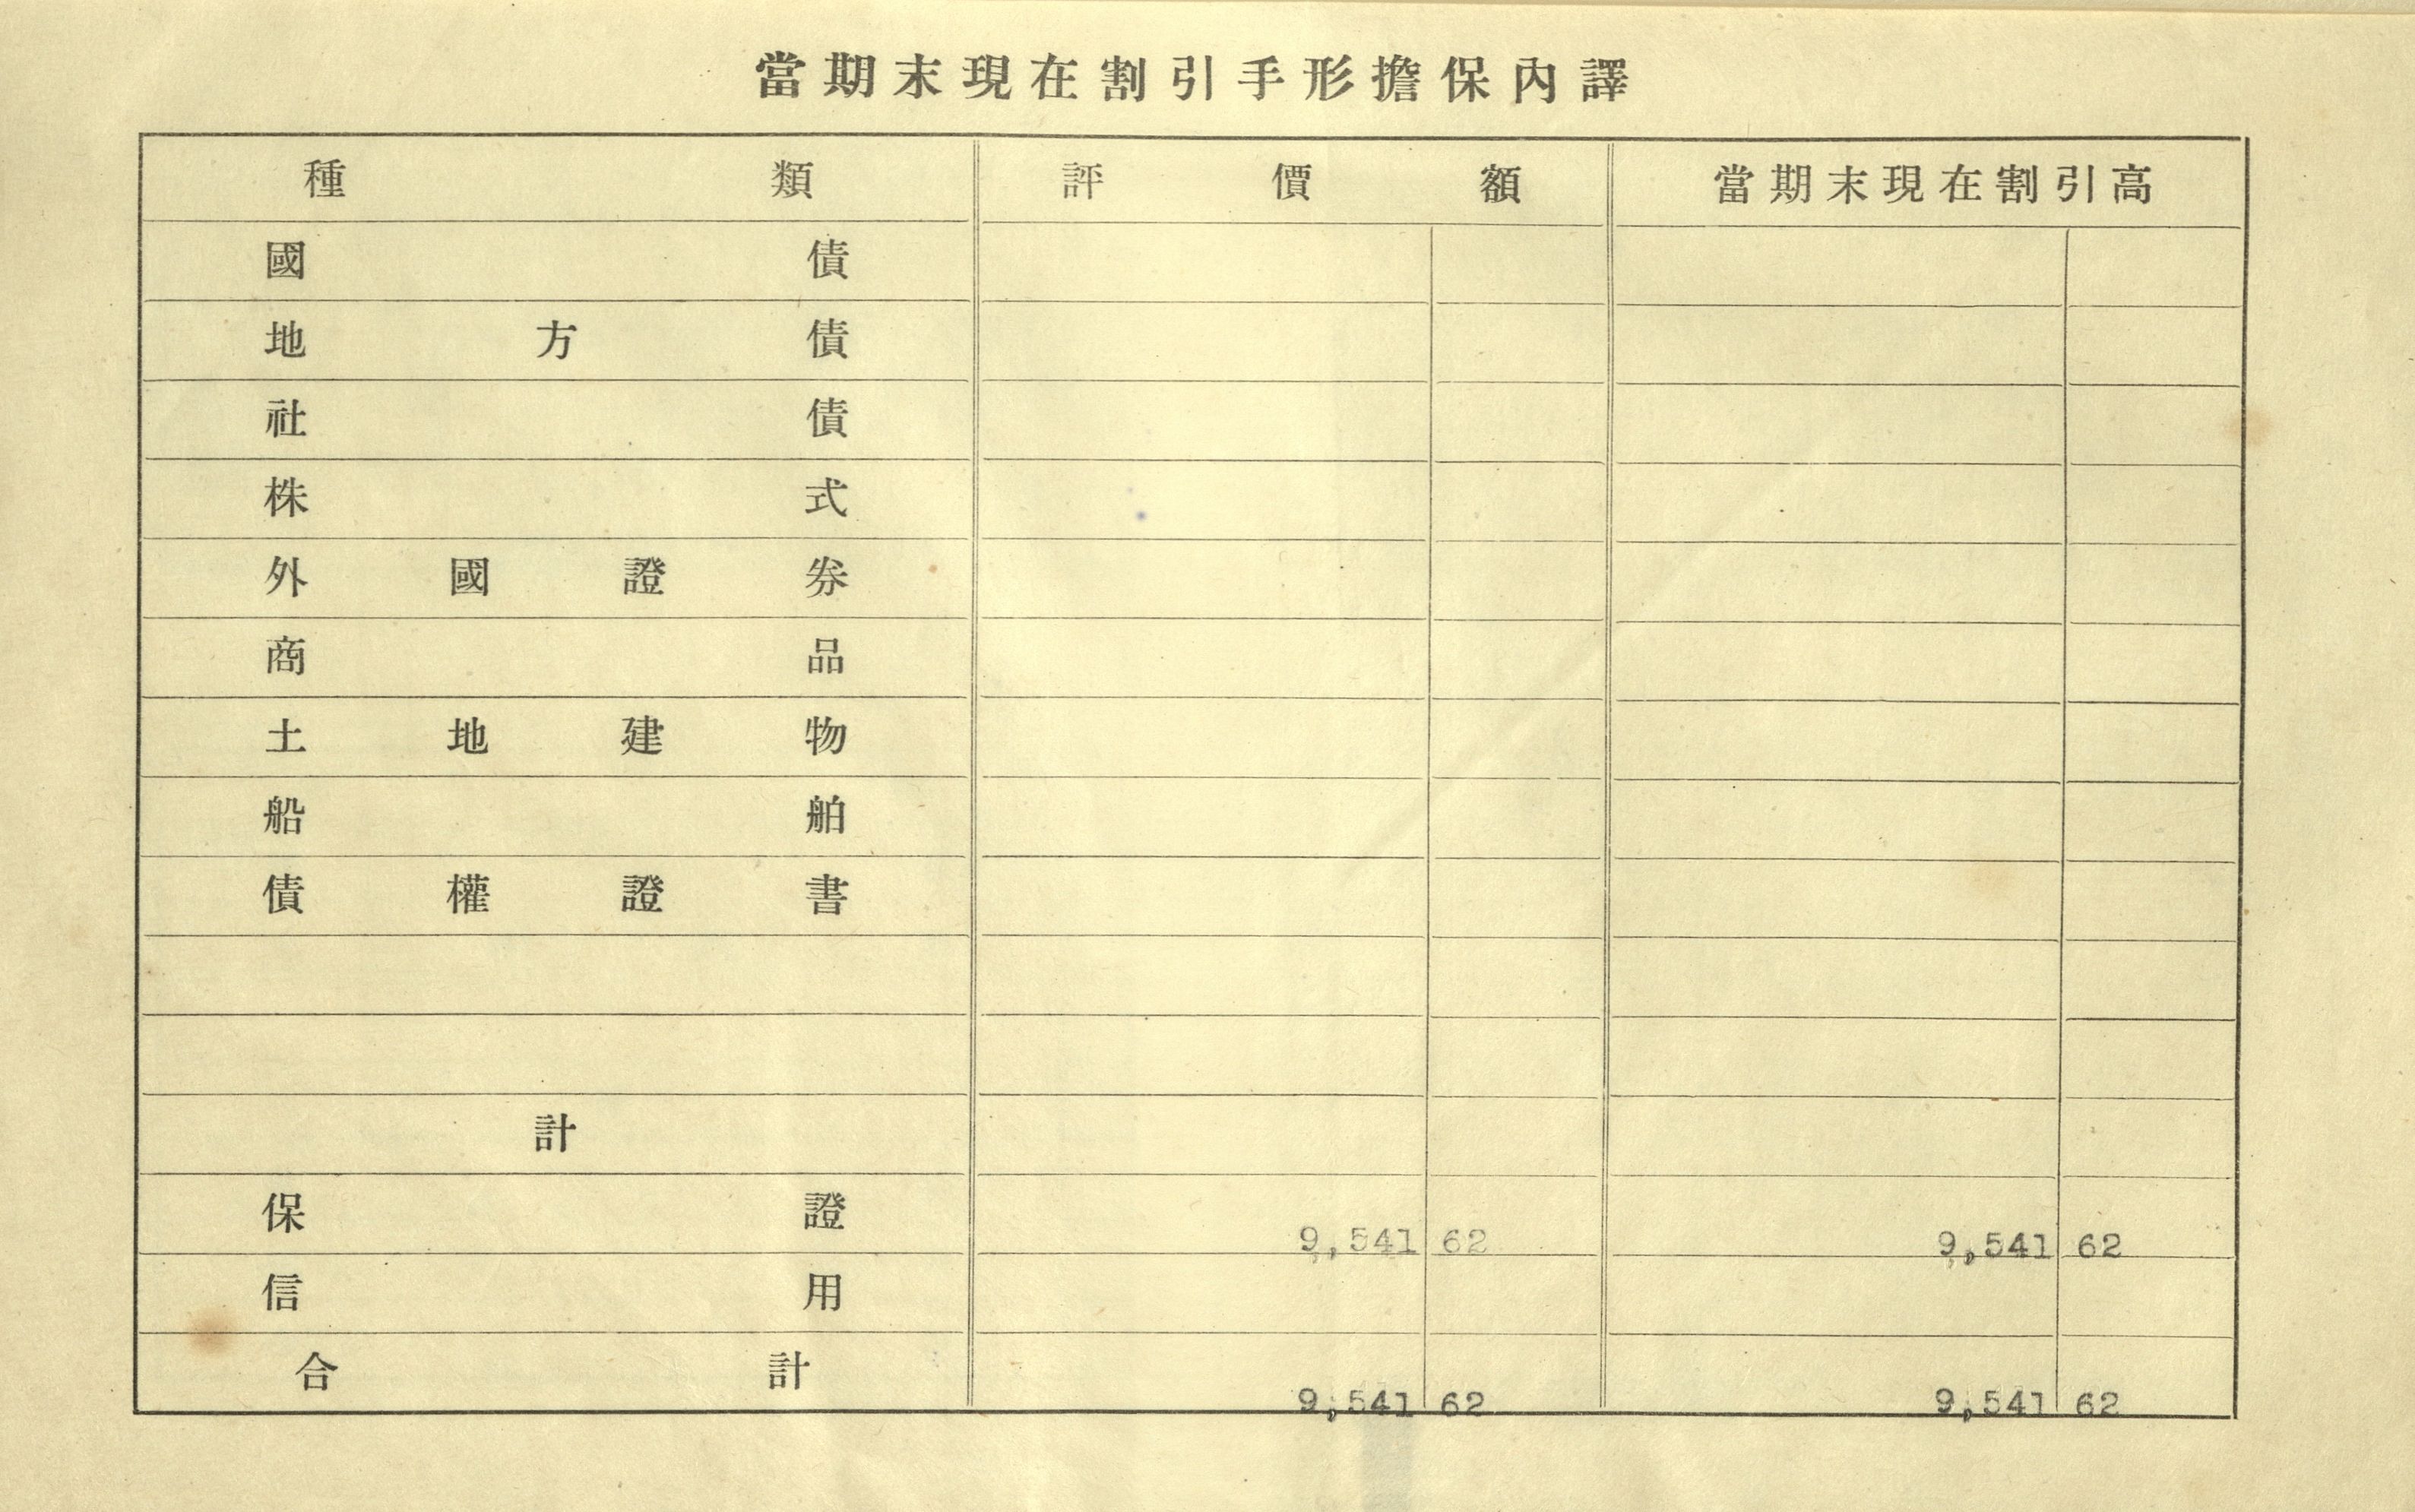 當期末現在割引手形擔保內譯
種類 評價額 當期末現在割引高
國債
地方債
社債
株式
外國證券
商品
土地建物
船舶
債權證書
計
保證 9,541 62 9,541 62
信用
合計 9,541 62 9,541 62